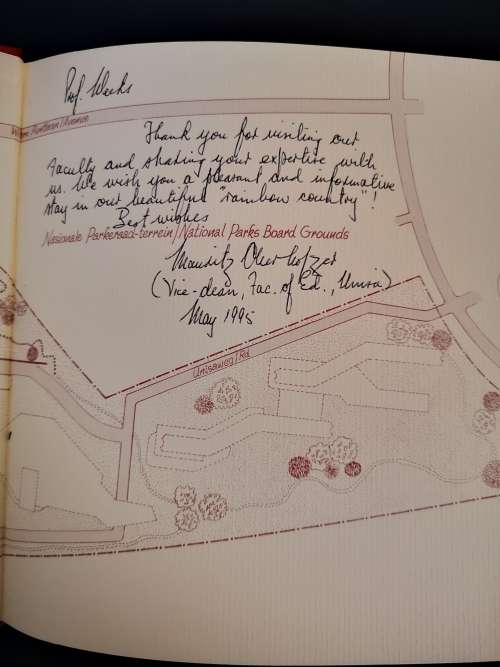 Prof. Weeks
Thank you for visiting our
Faculty and sharing your expertise with
us. We wish you a pleasant and informative
stay in our beautiful "rainbow country"!
Best wishes
Nasionale Parkeraad-terrein/National Parks Board Grounds
(Vice-dean, Fac. of Ed., Unisa)
May 1995
Unisaweg/Rd